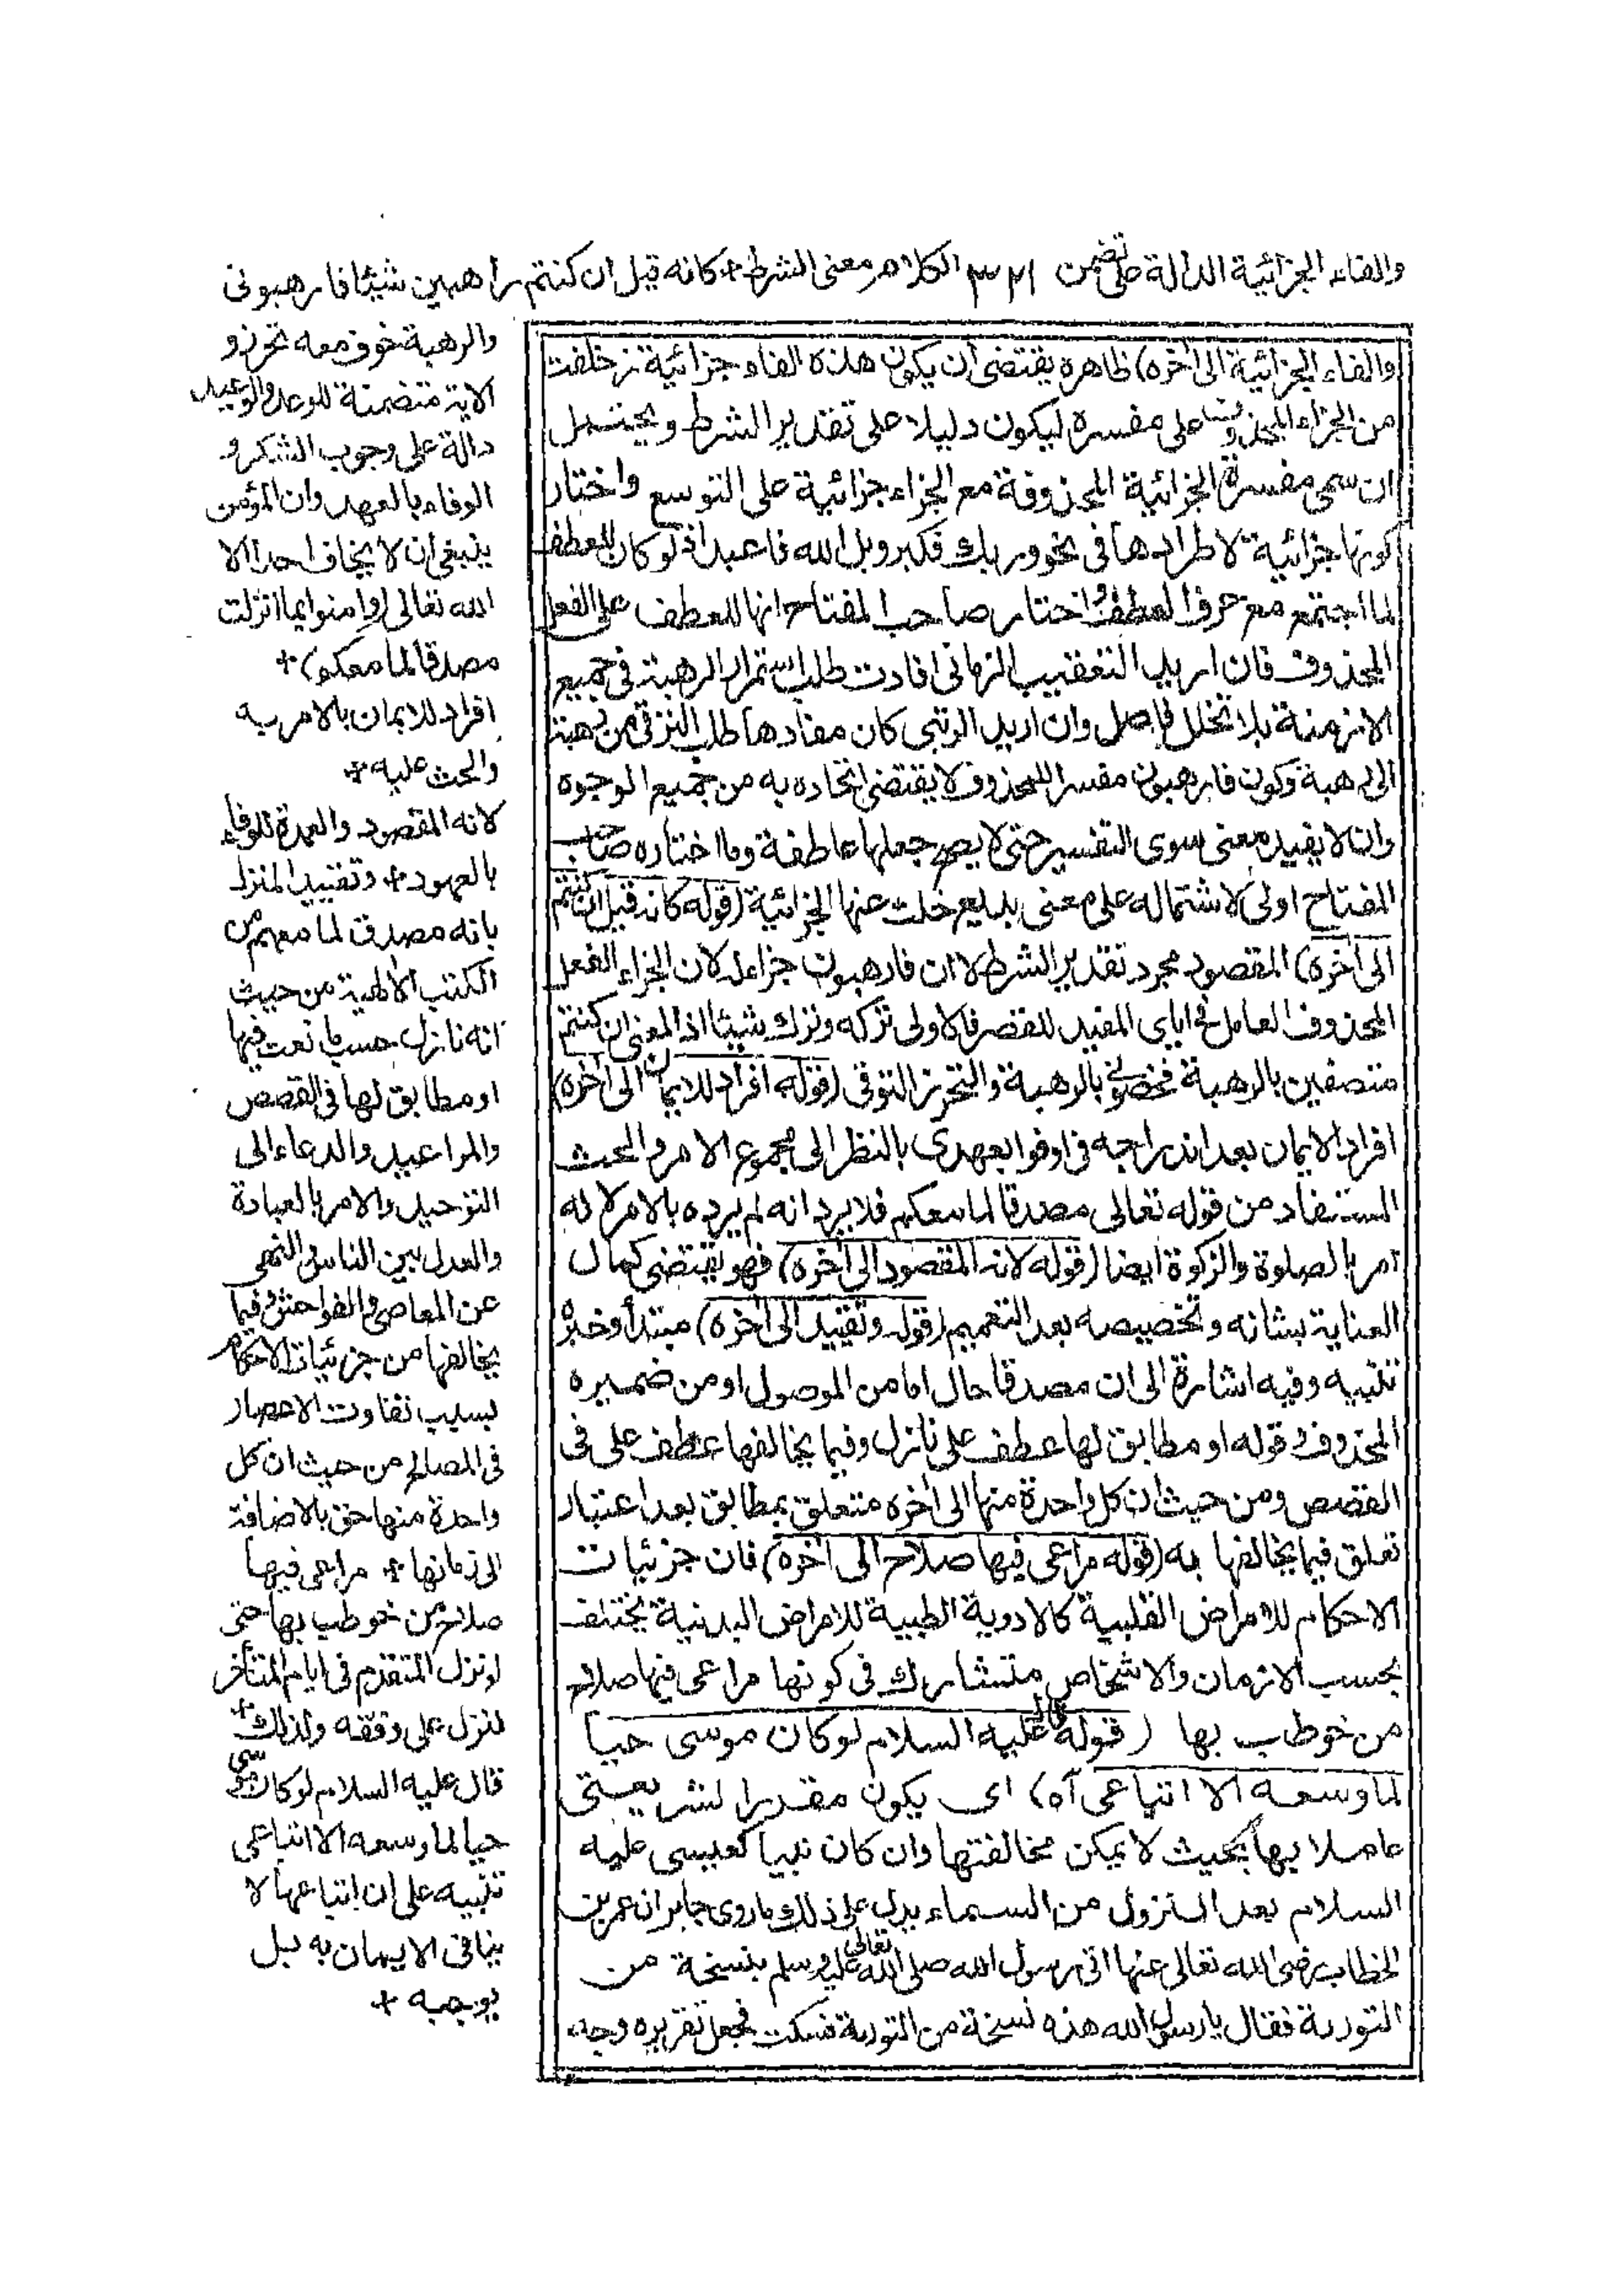 والفاء الجزائية الدالة على تضمن ٣٢١ الكلام معنى الشرط + كانه قيل ان كنتم راهبين شيئا فارهبونى
والرهبة خوف معه تحرز و
الاية متضمنة للوعد والوعيد
دالة على وجوب الشكر و
الوفاء بالعهد وان المؤمن
ينبغى ان لا يخاف احدا الا
الله تعالى (وامنوا بما انزلت
مصدقا لما معكم) +
افراد للايمان بالامر به
والحث عليه +
لانه المقصود والعمدة للوفاء
بالعهود + وتقييد المنزل
بانه مصدق لما معهم من
الكتب الالهية من حيث
انه نازل حسب ما نعت فيها
او مطابق لها فى القصص
والمواعيد والدعاء الى
التوحيد والامر بالعبادة
والعدل بين الناس والنهى
عن المعاصى والفواحش وفيما
يخالفها من جزئيات الاحكام
بسبب تفاوت الاعصار
فى المصالح من حيث ان كل
واحدة منها حق بالاضافة
الى زمانها + مراعى فيها
صلاح من خوطب بها حتى
لو نزل المتقدم فى ايام المتأخر
لنزل على وفقه ولذلك +
قال عليه السلام لو كان موسى
حيا لما وسعه الا اتباعى
تنبيه على ان اتباعها لا
ينافى الايمان به بل
يوجبه +
والفاء الجزائية الى اخره) ظاهره يقتضى ان يكون هذه الفاء جزائية زحلفت
من الجزاء المحذوف على مفسره ليكون دليلا على تقدير الشرط ويحتمل
ان سمى مفسرة الجزائية المحذوفة مع الجزاء جزائية على التوسع واختار
كونها جزائية لاطرادها فى نحو وربك فكبر وبل الله فاعبد اذ لو كان للعطف
لما اجتمع مع حرف العطف واختار صاحب المفتاح انها للعطف على الفعل
المحذوف فان اريد التعقيب الزمانى افادت طلب استمرار الرهبة فى جميع
الازمنة بلا تخلل فاصل وان اريد الرتبى كان مفادها طلب الترقى من رهبة
الى رهبة وكون فارهبون مفسرا للمحذوف لا يقتضى اتحاده به من جميع الوجوه
وان لا يفيد معنى سوى التفسير حتى لا يصح جعلها عاطفة وما اختاره صاحب
المفتاح اولى لاشتماله على معنى بديع خلت عنها الجزائية (قوله كانه قيل ان كنتم
الى اخره) المقصود مجرد تقدير الشرط لا ان فارهبون جزاء له لان الجزاء الفعل
المحذوف العامل فى اياى المفيد للقصر فالاولى تركه وترك شيئا اذ المعنى ان كنتم
متصفين بالرهبة فخصونى بالرهبة والتحرز التوقى (قوله افراد للايمان الى اخره)
افراد الايمان بعد اندراجه فى اوفوا بعهدى بالنظر الى مجموع الامر والحث
المستفاد من قوله تعالى مصدقا لما معكم فلا يرد انه لم يرده بالامر لانه
امر بالصلوة والزكوة ايضا (قوله لانه المقصود الى اخره) فهو يقتضى كمال
العناية بشانه وتخصيصه بعد التعميم (قوله وتقييد الى اخره) مبتدأ وخبره
تنبيه وفيه اشارة الى ان مصدقا حال اما من الموصول او من ضميره
المحذوف وقوله او مطابق لها عطف على نازل وفيما يخالفها عطف على فى
القصص ومن حيث ان كل واحدة منها الى اخره متعلق بمطابق بعد اعتبار
تعلق فيما يخالفها به (قوله مراعى فيها صلاح الى اخره) فان جزئيات
الاحكام للامراض القلبية كالادوية الطبية للامراض البدنية يختلف
بحسب الازمان والاشخاص متشارك فى كونها مراعى فيها صلاح
من خوطب بها (قوله قال عليه السلام لو كان موسى حيا
لما وسعه الا اتباعى اه) اى يكون مقدرا لشريعتى
عاملا بها بحيث لا يمكن مخالفتها وان كان نبيا كعيسى عليه
السلام بعد النزول من السماء يدل على ذلك ما روى جابر ان عمر بن
الخطاب رضى الله تعالى عنها اتى رسول الله صلى الله تعالى عليه وسلم بنسخة من
التورىة فقال يا رسول الله هذه نسخة من التورىة فسكت فجعل تقريره وجه